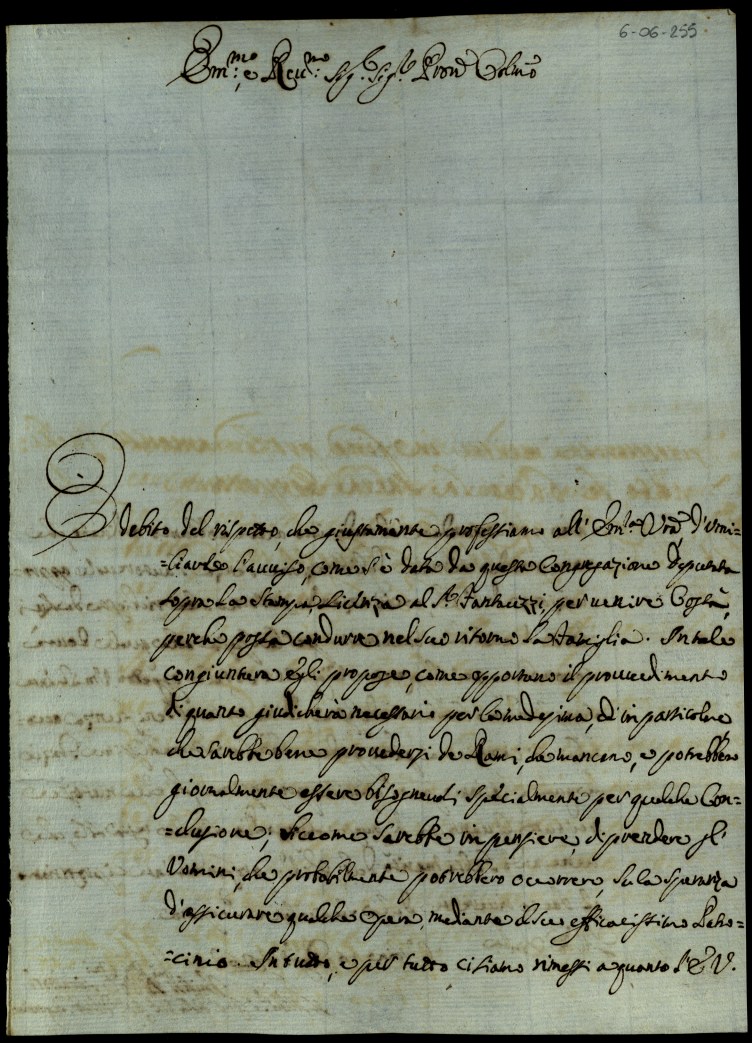 6-06-255
Em.mo e Reu.mo Sig.r Sig.r Pron Colmo
È debito del rispetto, che giustamente professiamo all' Em.a Vra, d'umi=
=liarle l'auuiso, come s'è data da questa Congregazione deputata
sopra la Stampa, licenza al S.r Fantuzzi, per uenire Costà,
perche possa condurre nel suo ritorno la Famiglia. In tale
congiuntura Egli propose, come opportuno il prouuedimento
di quanto giudicherà necessario per la medesima, ed in particolare
che sarebbe bene prouedersi de Rami, che mancano, e potrebbero
giornalmente essere bisogneuoli specialmente per qualche Con=
=clusione; Siccome sarebbe in pensiere, di prendere gl'
Uomini, che probabilmente potrebbero occorrere, su la speranza
d'assicurare qualche Opera, mediante il suo efficacissimo Patro=
=cinio. In tutto, e per tutto ci siamo rimessi a quanto l'E V.